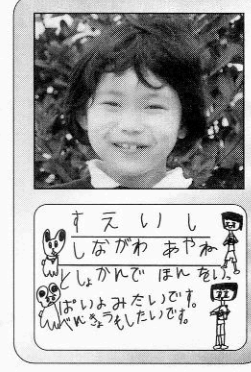 すえいし
しながわ あやね
としょかんで ほんをい
ぱいよみたいです。
べんきょうもしたいです。